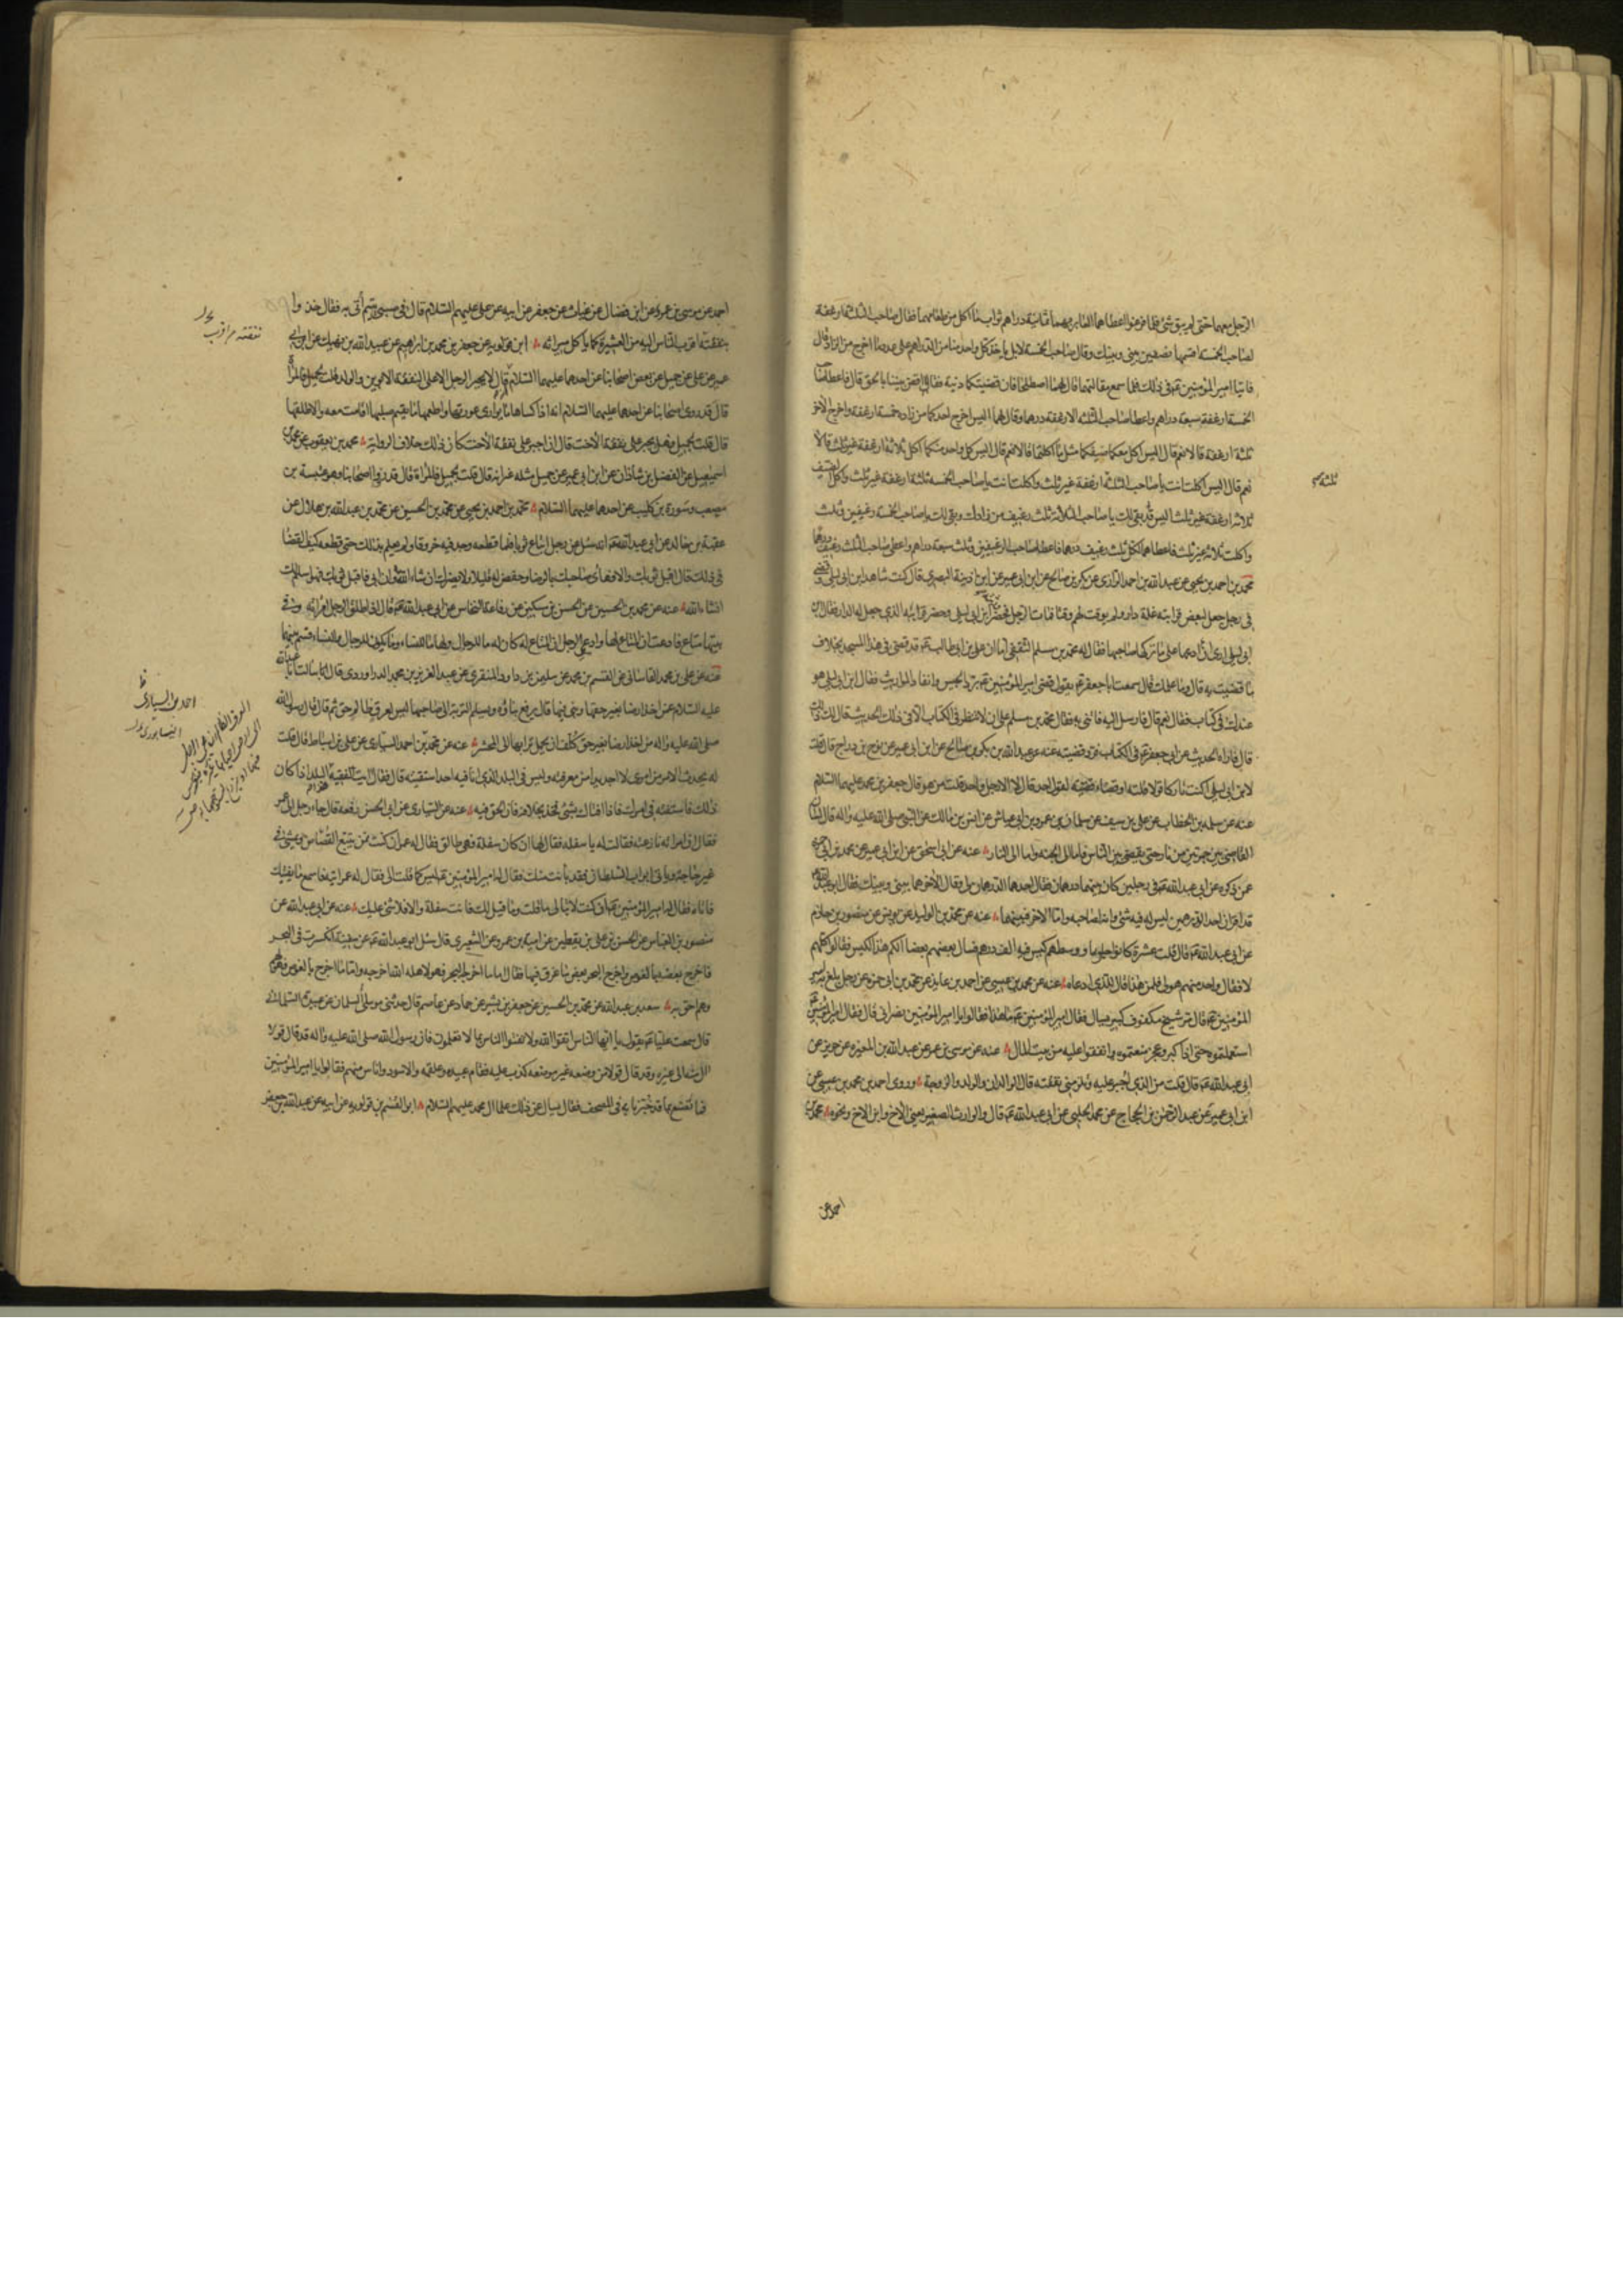 الرجل معهما حتى لم يبق شئ فلما فرغوا اعطاهما العابر بهما ثمانية دراهم ثواب ما اكل من طعامهما فقال صاحب الثلثة ارغفة
لصاحب الخمسة اقسمها نصفين بيني وبينك وقال صاحب الخمسة لا بل ياخذ كل واحد منا من الدراهم على عدد ما اخرج من الزاد قال
فاتيا امير المؤمنين ع في ذلك فلما سمع مقالتهما قال لهما اصطلحا فان قضيتكما دنية فقالا اقض بيننا بالحق قال فاعطى صاحب
الخمسة ارغفة سبعة دراهم واعطا صاحب الثلثة الارغفة درهما وقال لهما اليس اخرج احدكما من زاده خمسة ارغفة واخرج الآخر
ثلثة ارغفة قالا نعم قال اليس اكل معكما ضيفكما مثل ما اكلتما قالا نعم قال اليس كل واحد منكما اكل ثلاثة ارغفة غير ثلث قالا
نعم قال اليس اكلت انت يا صاحب الثلثة ارغفة غير ثلث واكلت انت يا صاحب الخمسة ثلثة ارغفة غير ثلث واكل الضيف
ثلاثة ارغفة غير ثلث اليس قد بقى لك يا صاحب الثلاثة ثلث رغيف من زادك وبقى لك يا صاحب الخمسة رغيفين وثلث
واكلت ثلاثة غير ثلث فاعطاهما لكل ثلث رغيف درهما فاعطا صاحب الرغيفين وثلث سبعة دراهم واعطى صاحب الثلث رغيف درهما
محمد بن احمد بن يحيى عن عبد الله بن احمد الرازى عن بكر بن صالح عن ابن ابى عمير عن ابن اذينة البصرى قال كنت شاهد ابن ابى ليلى وقضى
في رجل جعل لبعض قرابته غلة دار ولم يوقت لهم وقتا فمات الرجل فحضر ابن ابى ليلى وحضر قرابته الذى جعل له الدار فقال ابن
ابى ليلى ارى ان ادعها على ما تركها صاحبها فقال له محمد بن مسلم الثقفى اما ان على بن ابى طالب ع قد قضى في هذا المسجد بخلاف
ما قضيت به قال وما علمك قال سمعت ابا جعفر ع يقول قضى امير المؤمنين ع برد الحبيس وانفاذ المواريث فقال ابن ابى ليلى هو
عندك في كتاب فقال نعم قال فارسل اليه فائتنى به فقال محمد بن مسلم على ان لا تنظر في الكتاب الا في ذلك الحديث قال لك ذلك
قال فاراه الحديث عن ابى جعفر ع في الكتاب فرد قضيته عنه عن عبد الله عن بكر بن صالح عن ابن ابى عمير عن نوح بن دراج قال قلت
لابن ابى ليلى اكنت تاركا قولا قلته او قضاء قضيته لقول احد قال لا الا رجل واحد قلت من هو قال جعفر بن محمد عليهما السلام
عنه عن سلمة بن الخطاب عن على بن سيف عن سلمان بن عمرو بن ابى عياش عن انس بن مالك عن النبى صلى الله عليه واله قال لسان
القاضى بين جمرتين من نار حتى يقضى بين الناس فاما الى الجنة واما الى النار عنه عن ابى اسحق عن ابن ابى عمير عن محمد بن ابى حمزة
عمن ذكره عن ابى عبد الله ع في رجلين كان بينهما درهمان فقال احدهما الدرهمان لى وقال الآخر هما بينى وبينك فقال ابو عبد الله ع
قد اقر ان احد الدرهمين ليس له فيه شئ وانه لصاحبه واما الآخر فبينهما عنه عن محمد بن الوليد عن يونس عن منصور بن حازم
عن ابى عبد الله ع قال قلت عشرة كانوا جلوسا ووسطهم كيس فيه الف درهم فسال بعضهم بعضا الكم هذا الكيس فقالوا كلهم
لا فقال واحد منهم هو لى فلمن هذا قال للذى ادعاه عنه عن محمد بن عيسى عن احمد بن عايذ عن محمد بن ابى حمزة عن رجل بلغ به امير
المؤمنين ع قال مر شيخ مكفوف كبير يسال فقال امير المؤمنين ع ما هذا فقالوا يا امير المؤمنين نصرانى قال فقال امير المؤمنين ع
استعملتموه حتى اذا كبر وعجز منعتموه وانفقوا عليه من بيت المال عنه عن موسى بن عمر عن عبد الله بن المغيرة عن حريز عن
ابى عبد الله ع قال قلت من الذى اجبر عليه وتلزمنى نفقته قال الوالدان والولد والزوجة وروى احمد بن محمد بن عيسى عن
ابن ابى عمير عن عبد الرحمن بن الحجاج عن محمد الحلبى عن ابى عبد الله ع قال والوارث الصغير يعنى الاخ وابن الاخ ونحوه محمد بن
احمد عن
احمد عن موسى بن عمر عن ابن فضال عن غياث عن جعفر عن ابيه عن على عليهم السلام قال في صبى يتيم أتى به فقال خذوا
بنفقته اقرب الناس اليه من العشيرة كما ياكل ميراثه ابن قولويه عن جعفر بن محمد بن ابراهيم عن عبيد الله بن نهيك عن ابن ابى
عمير عن على عن جميل عن بعض اصحابنا عن احدهما عليهما السلام قال لا يجبر الرجل الا على نفقة الابوين والولد قلت لجميل فالمرأة
قال قد روى اصحابنا عن احدهما عليهما السلام انه اذا كساها ما يوارى عورتها واطعمها ما يقيم صلبها اقامت معه والا طلقها
قال قلت لجميل فهل يجبر على نفقة الاخت قال ان اجبر على نفقة الاخت كان ذلك خلاف الرواية محمد بن يعقوب عن محمد بن
اسمعيل عن الفضل بن شاذان عن ابن ابى عمير عن جميل مثله غير انه قال قلت لجميل فالمرأة قال قد روى اصحابنا وهو عنبسة بن
مصعب وسورة بن كليب عن احدهما عليهما السلام محمد بن احمد بن يحيى عن محمد بن الحسين عن محمد بن عبد الله بن هلال عن
عقبة بن خالد عن ابى عبد الله ع انه سئل عن رجل ابتاع ثوبا فلما قطعه وجد فيه خروقا ولم يعلم بذلك حتى قطعه كيف القضا
في ذلك قال اقبل ثوبك والا فهاى صاحبك بالرضا وخفض له قليلا ولا يضرك ان شاء الله وان ابى فاقبل ثوبك فهو اسلم لك
انشاء الله عنه عن محمد بن الحسين عن الحسن بن سكين عن رفاعة النخاس عن ابى عبد الله ع قال اذا طلق الرجل امراته وفي
بيتها متاع فادعت ان المتاع لها وادعى الرجل ان المتاع له كان له ما للرجال ولها ما للنساء وما يكون للرجال والنساء قسم بينهما
عنه عن على بن محمد القاسانى عن القسم بن محمد عن سليمن بن داود المنقرى عن عبد العزيز بن محمد الدراوردى قال سالت ابا عبد الله
عليه السلام عن اخذ ارضا بغير حقها وبنى فيها قال يرفع بناؤه ويسلم التربة الى صاحبها ليس لعرق ظالم حق ثم قال قال رسول الله
صلى الله عليه واله من اخذ ارضا بغير حق كلف ان يحمل ترابها الى المحشر عنه عن محمد بن احمد السيارى عن على بن اسباط قال قلت
له يحدث الامر من امرى لا اجد بدا من معرفته وليس في البلد الذى انا فيه احد استفتيه قال فقال ايت الفقيه البلد اذا كان
ذلك فاستفته في امرك فاذا افتاك بشئ فخذ بخلافه فان الحق فيه عنه عن السيارى عن ابى الحسن رفعه قال جاء رجل الى عمر
فقال ان امراته نازعته فقالت له يا سفلة فقال لها ان كان سفلة فهى طالق فقال له عمر ان كنت ممن يتبع القصاص ويمشى في
غير حاجة وياتى ابواب السلطان فقد بانت منك فقال له امير المؤمنين ع ليس كما قلت الى فقال له عمر ايته فاسمع ما يفتيك
فاتاه فقال له امير المؤمنين ع ان كنت لا تبالى ما قلت وما قيل لك فانت سفلة والا فلا شئ عليك عنه عن ابى عبد الله عن
منصور بن العباس عن الحسن بن على بن يقطين عن امية بن عمرو عن الشعيرى قال سئل ابو عبد الله ع عن سفينة انكسرت في البحر
فاخرج بعضه بالغوص واخرج البحر بعض ما غرق فيها فقال اما ما اخرجه البحر فهو لاهله الله اخرجه واما ما اخرج بالغوص فهو لهم
وهم احق به سعد بن عبد الله عن محمد بن الحسين عن جعفر بن بشير عن حماد عن عاصم قال حدثنى مولى لسلمان عن عبيدة السلمانى
قال سمعت عليا ع يقول يا ايها الناس اتقوا الله ولا تفتوا الناس بما لا تعلمون فان رسول الله صلى الله عليه واله قد قال قولا
آل منه الى غيره وقد قال قولا من وضعه غير موضعه كذب عليه فقام عبيدة وعلقمة والاسود واناس منهم فقالوا يا امير المؤمنين
فما نصنع بما قد خبرنا به في المصحف فقال يسال عن ذلك علماء ال محمد عليهم السلام ابو القسم بن قولويه عن ابيه عن عبد الله بن جعفر